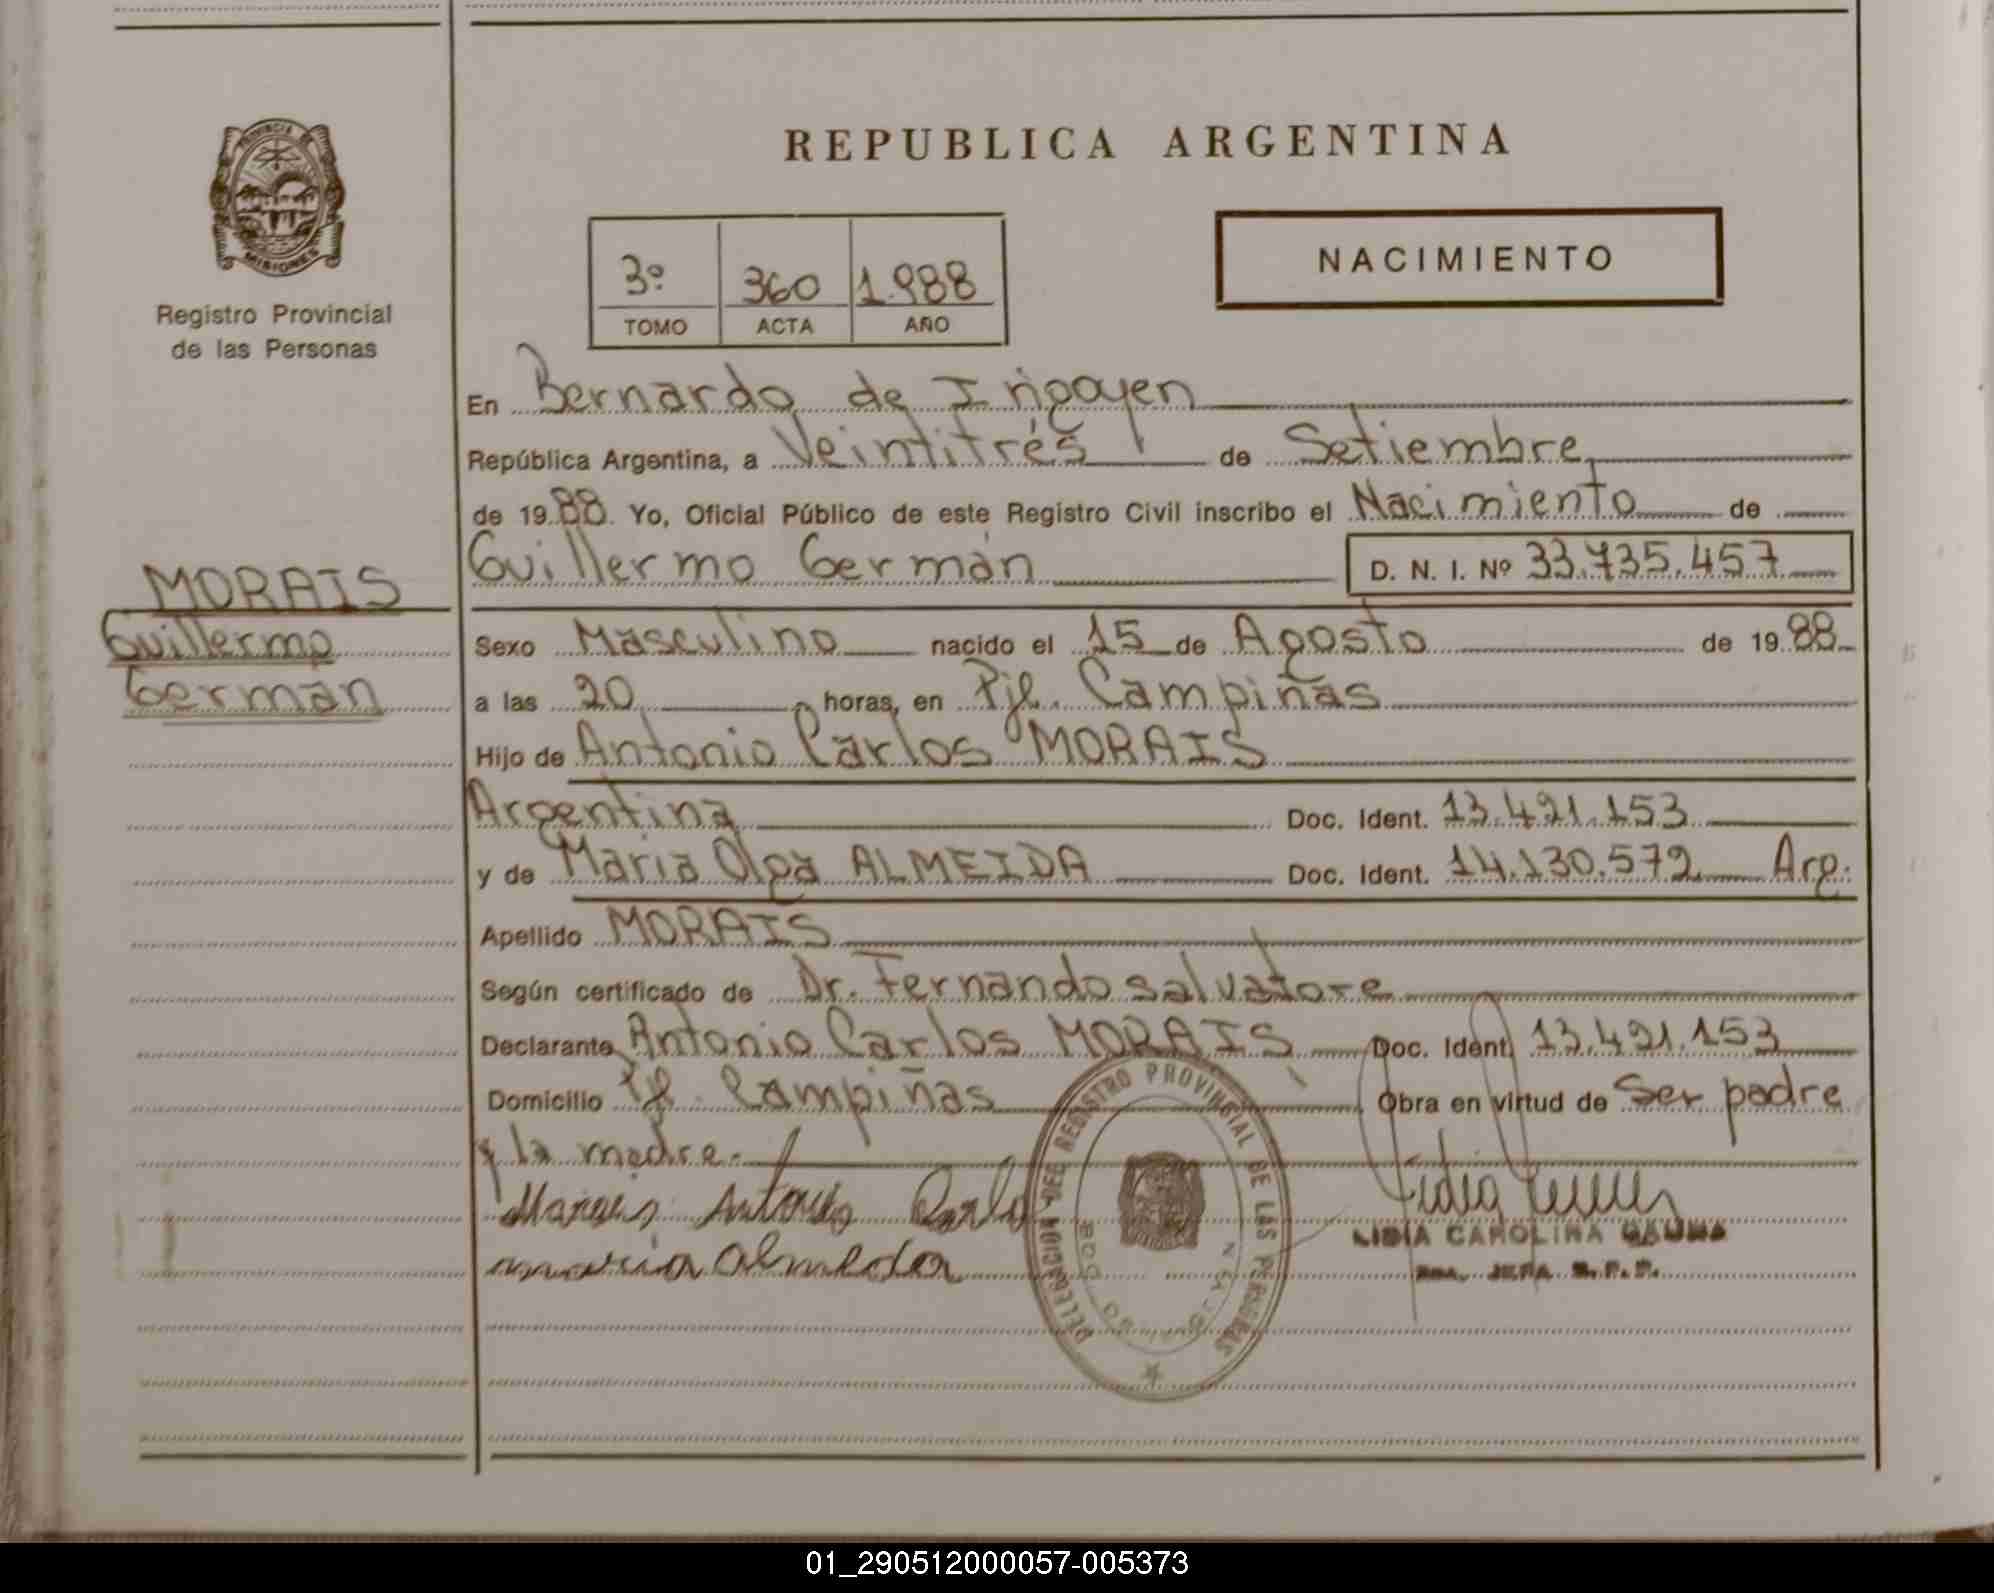 PROVINCIA DE
MISIONES
Registro Provincial
de las Personas
MORAIS
Guillermo
Germán
REPUBLICA ARGENTINA
3º 360 1.988
TOMO ACTA AÑO
NACIMIENTO
En Bernardo de Irigoyen
República Argentina, a Veintitrés de Setiembre
de 1988. Yo, Oficial Público de este Registro Civil inscribo el Nacimiento de
Guillermo Germán D. N. I. Nº 33.735.457
Sexo Masculino nacido el 15 de Agosto de 1988
a las 20 horas, en Pje. Campiñas
Hijo de Antonio Carlos MORAIS
Argentina Doc. Ident. 13.421.153
y de Maria Olga ALMEIDA Doc. Ident. 14.130.572 Arg.
Apellido MORAIS
Según certificado de Dr. Fernando salvatore
Declarante Antonio Carlos MORAIS Doc. Ident. 13.421.153
Domicilio Pje. Campiñas Obra en virtud de Ser padre
y la madre.
Morais Antonio Carlo
maria almeda
DELEGACION DEL REGISTRO PROVINCIAL DE LAS PERSONAS
LIDIA CAROLINA
JEFA R.P.P.
01_290512000057-005373